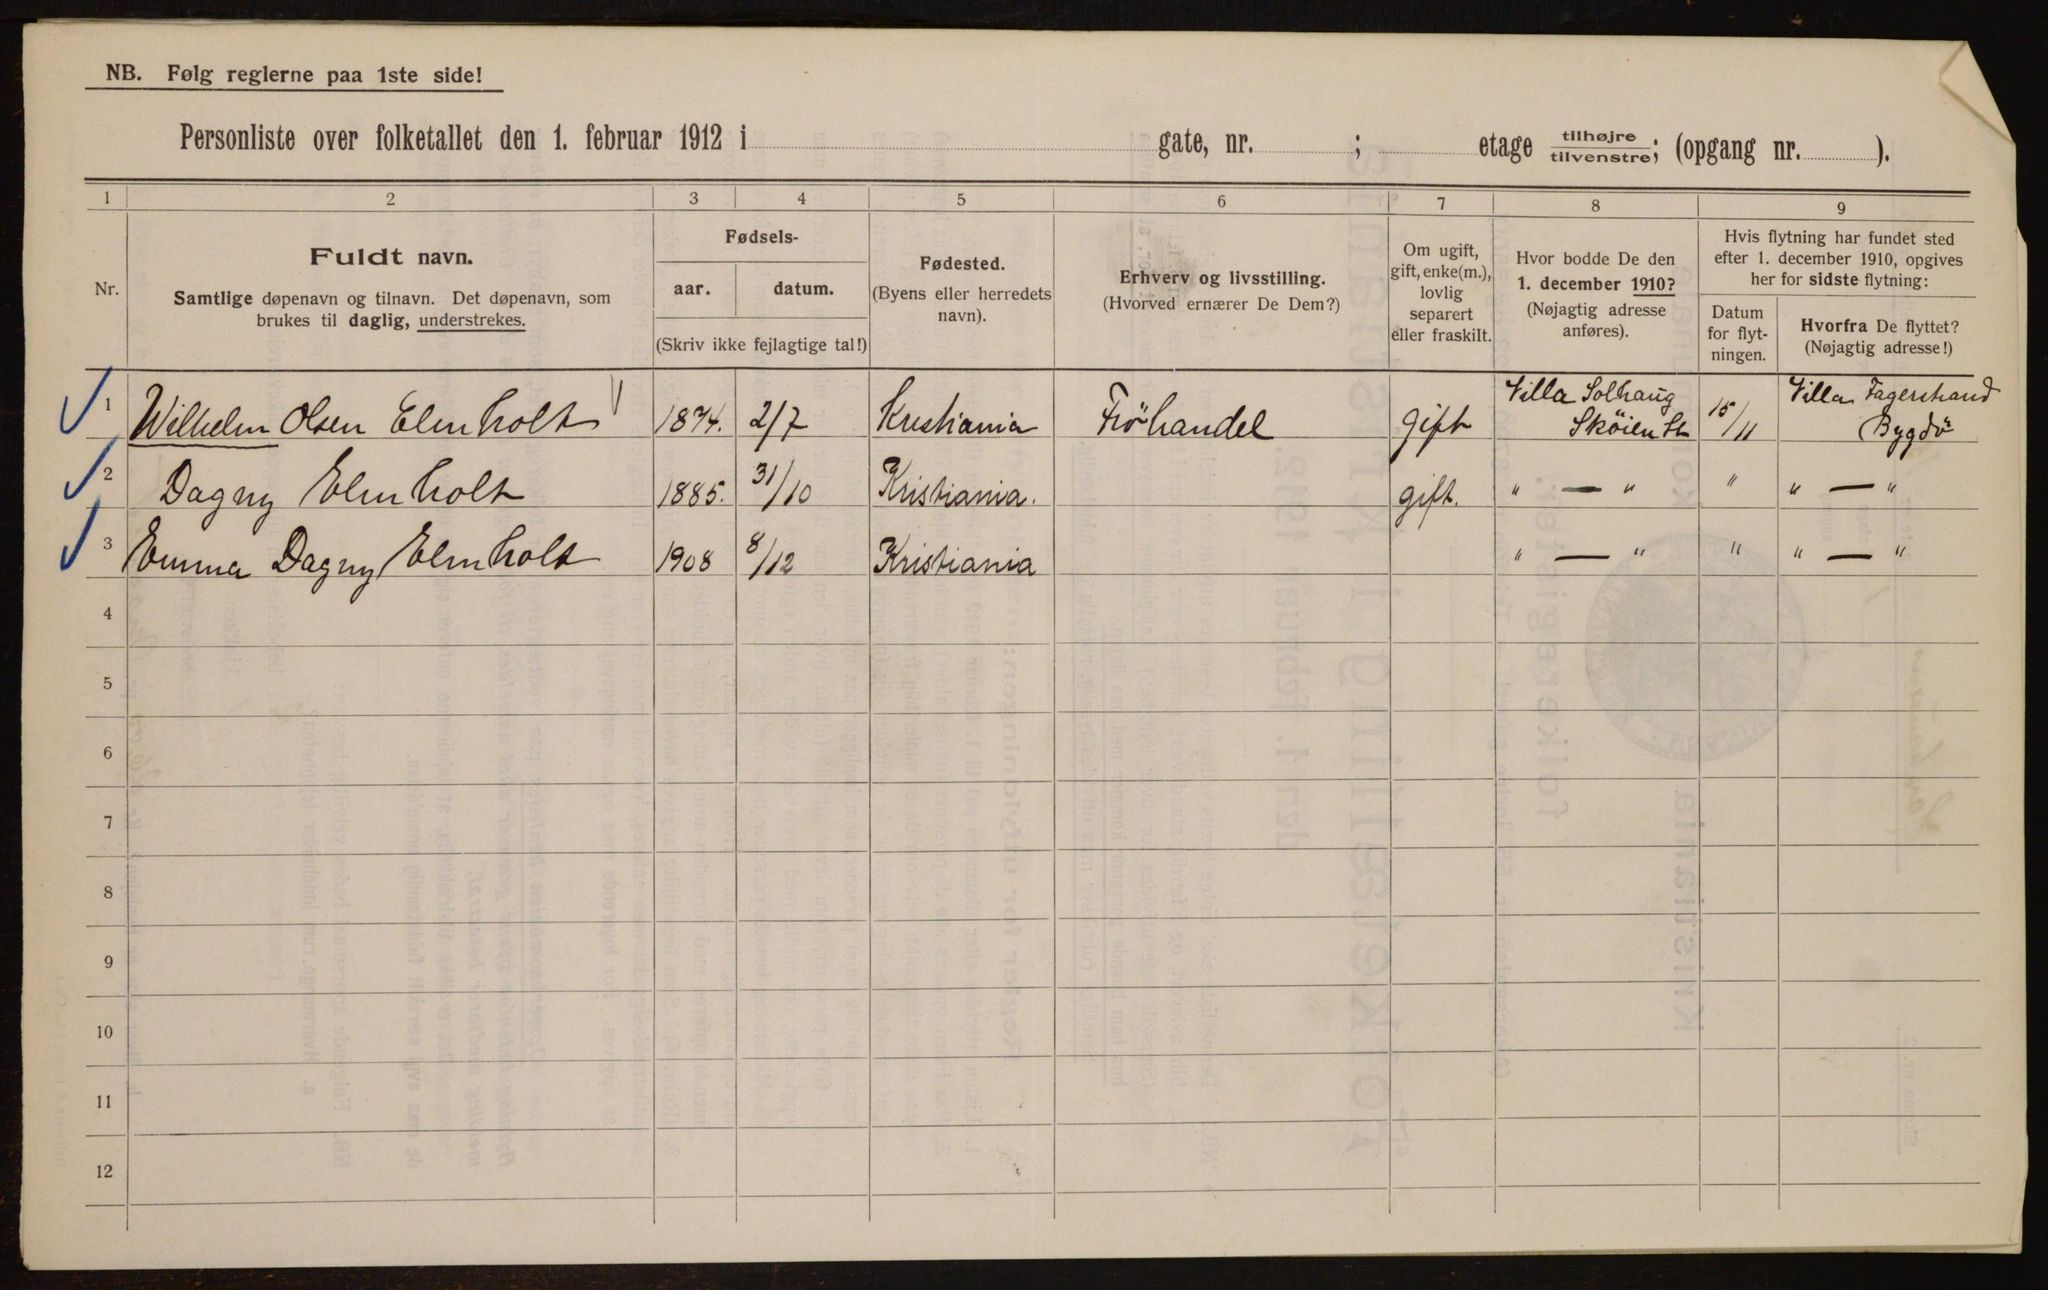 NB. Følg reglerne paa 1ste side!
Personliste over folketallet den 1. februar 1912 i gate, nr. ; etage tilhøjre tilvenstre; (opgang nr. ).
1 2 3 4 5 6 7 8 9
Nr.
Fuldt navn.
Samtlige døpenavn og tilnavn. Det døpenavn, som
brukes til daglig, understrekes.
Fødsels-
aar. datum.
(Skriv ikke fejlagtige tal!)
Fødested.
(Byens eller herredets
navn).
Erhverv og livsstilling.
(Hvorved ernærer De Dem?)
Om ugift,
gift, enke(m.),
lovlig
separert
eller fraskilt.
Hvor bodde De den
1. december 1910?
(Nøjagtig adresse
anføres).
Hvis flytning har fundet sted
efter 1. december 1910, opgives
her for sidste flytning:
Datum
for flyt-
ningen.
Hvorfra De flyttet?
(Nøjagtig adresse!)
1 Wilhelm Olsen Elmholt 1874. 2/7 Kristiania Fröhandel gift Villa Solhaug Skøien St 15/11 Villa Fagerstrand Bygdö
2 Dagny Elmholt 1885. 31/10 Kristiania. gift. " — " " " — "
3 Emma Dagny Elmholt 1908 8/12 Kristiania " — " " " — "
4
5
6
7
8
9
10
11
12